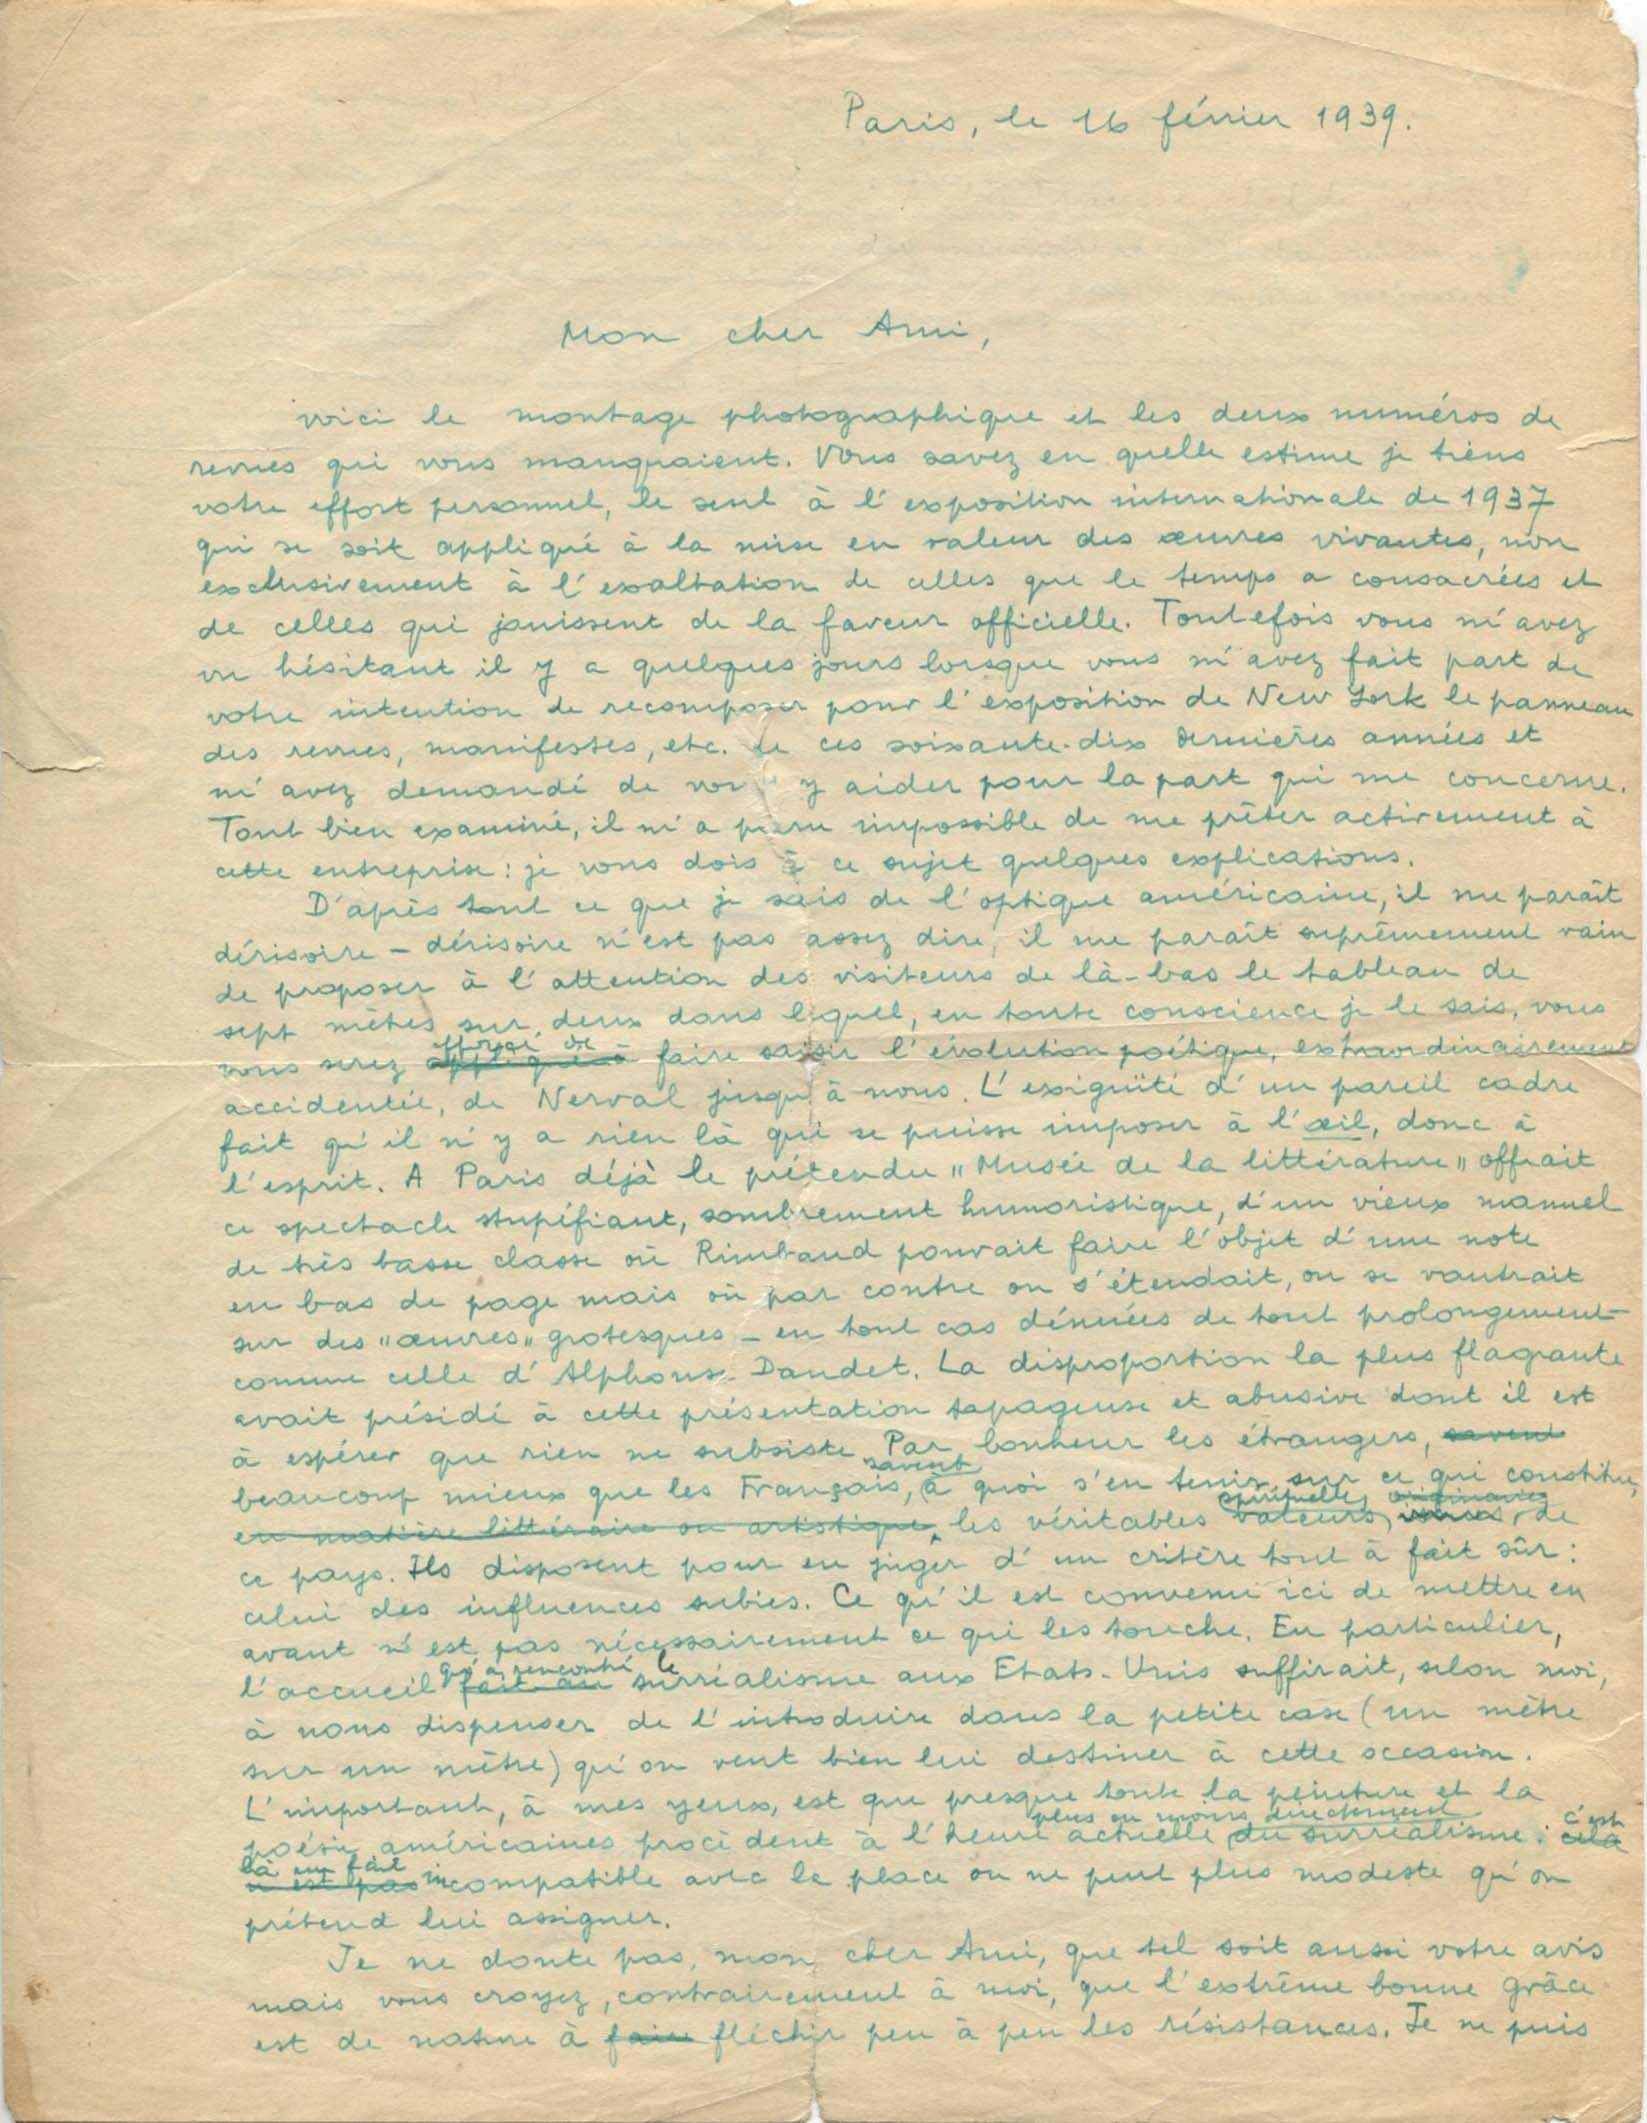 Paris, le 16 février 1939.
Mon cher Ami,
voici le montage photographique et les deux numéros de
revues qui vous manquaient. Vous savez en quelle estime je tiens
votre effort personnel, le seul à l'exposition internationale de 1937
qui se soit appliqué à la mise en valeur des œuvres vivantes, non
exclusivement à l'exaltation de celles que le temps a consacrées et
de celles qui jouissent de la faveur officielle. Toutefois vous m'avez
vu hésitant il y a quelques jours lorsque vous m'avez fait part de
votre intention de recomposer pour l'exposition de New York le panneau
des revues, manifestes, etc. de ces soixante-dix dernières années et
m'avez demandé de vous y aider pour la part qui me concerne.
Tout bien examiné, il m'a paru impossible de me prêter activement à
cette entreprise : je vous dois à ce sujet quelques explications.
D'après tout ce que je sais de l'optique américaine, il me paraît
dérisoire – dérisoire n'est pas assez dire, il me paraît suprêmement vain
de proposer à l'attention des visiteurs de là-bas le tableau de
sept mètres sur deux dans lequel, en toute conscience je le sais, vous
efforcé de
vous serez appliqué à faire saisir l'évolution poétique, extraordinairement
accidentée, de Nerval jusqu'à nous. L'exiguïté d'un pareil cadre
fait qu'il n'y a rien là qui se puisse imposer à l'œil, donc à
l'esprit. A Paris déjà le prétendu "Musée de la littérature" offrait
ce spectacle stupéfiant, sombrement humoristique, d'un vieux manuel
de très basse classe où Rimbaud pouvait faire l'objet d'une note
en bas de page mais où par contre on s'étendait, on se vautrait
sur des "œuvres" grotesques – en tout cas dénuées de tout prolongement –
comme celle d'Alphonse Daudet. La disproportion la plus flagrante
avait présidé à cette présentation tapageuse et abusive dont il est
à espérer que rien ne subsiste. Par bonheur les étrangers, savent
savent
beaucoup mieux que les Français, à quoi s'en tenir sur ce qui constitue,
spirituelles originaires
en matière littéraire ou artistique, les véritables valeurs, de
ce pays. Ils disposent pour en juger d'un critère tout à fait sûr :
celui des influences subies. Ce qu'il est convenu ici de mettre en
avant n'est pas nécessairement ce qui les touche. En particulier,
qu'a rencontré le
l'accueil fait au surréalisme aux Etats-Unis suffirait, selon moi,
à nous dispenser de l'introduire dans la petite case (un mètre
sur un mètre) qu'on veut bien lui destiner à cette occasion.
L'important, à mes yeux, est que presque toute la peinture et la
plus ou moins directement c'est
poésie américaines procèdent à l'heure actuelle du surréalisme : cela
là un fait in
n'est pas compatible avec la place on ne peut plus modeste qu'on
prétend lui assigner.
Je ne doute pas, mon cher Ami, que tel soit aussi votre avis
mais vous croyez, contrairement à moi, que l'extrême bonne grâce
est de nature à faire fléchir peu à peu les résistances. Je ne puis